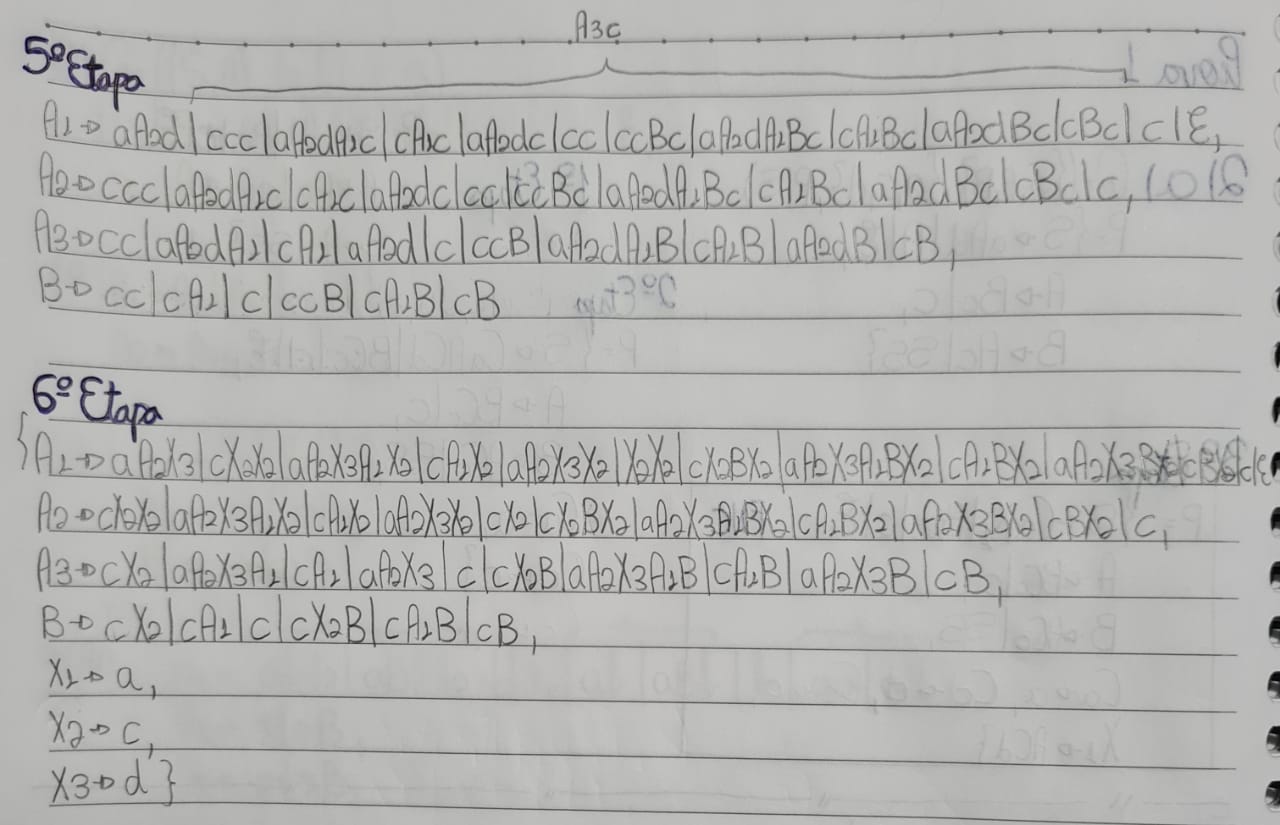 A3c
5º Etapa
A1→ aA2d|ccc|aA2dA1c|cA1c|aA2dc|cc|ccBc|aA2dA1Bc|cA1Bc|aA2dBc|cBc|c|ε,
A2→ccc|aA2dA1c|cA1c|aA2dc|cc|ccBc|aA2dA1Bc|cA1Bc|aA2dBc|cBc|c,
A3→cc|aA2dA1|cA1|aA2d|c|ccB|aA2dA1B|cA1B|aA2dB|cB,
B→ cc|cA1|c|ccB|cA1B|cB
6º Etapa
{A1→aA2X3|cX2X2|aA2X3A1X2|cA1X2|aA2X3X2|X2X2|cX2BX2|aA2X3A1BX2|cA1BX2|aA2X3BX2|cBX2|c|ε
A2→cX2X2|aA2X3A1X2|cA1X2|aA2X3X2|cX2|cX2BX2|aA2X3A1BX2|cA1BX2|aA2X3BX2|cBX2|c,
A3→cX2|aA2X3A1|cA1|aA2X3|c|cX2B|aA2X3A1B|cA1B|aA2X3B|cB,
B→ cX2|cA1|c|cX2B|cA1B|cB,
X1→a,
X2→c,
X3→d}